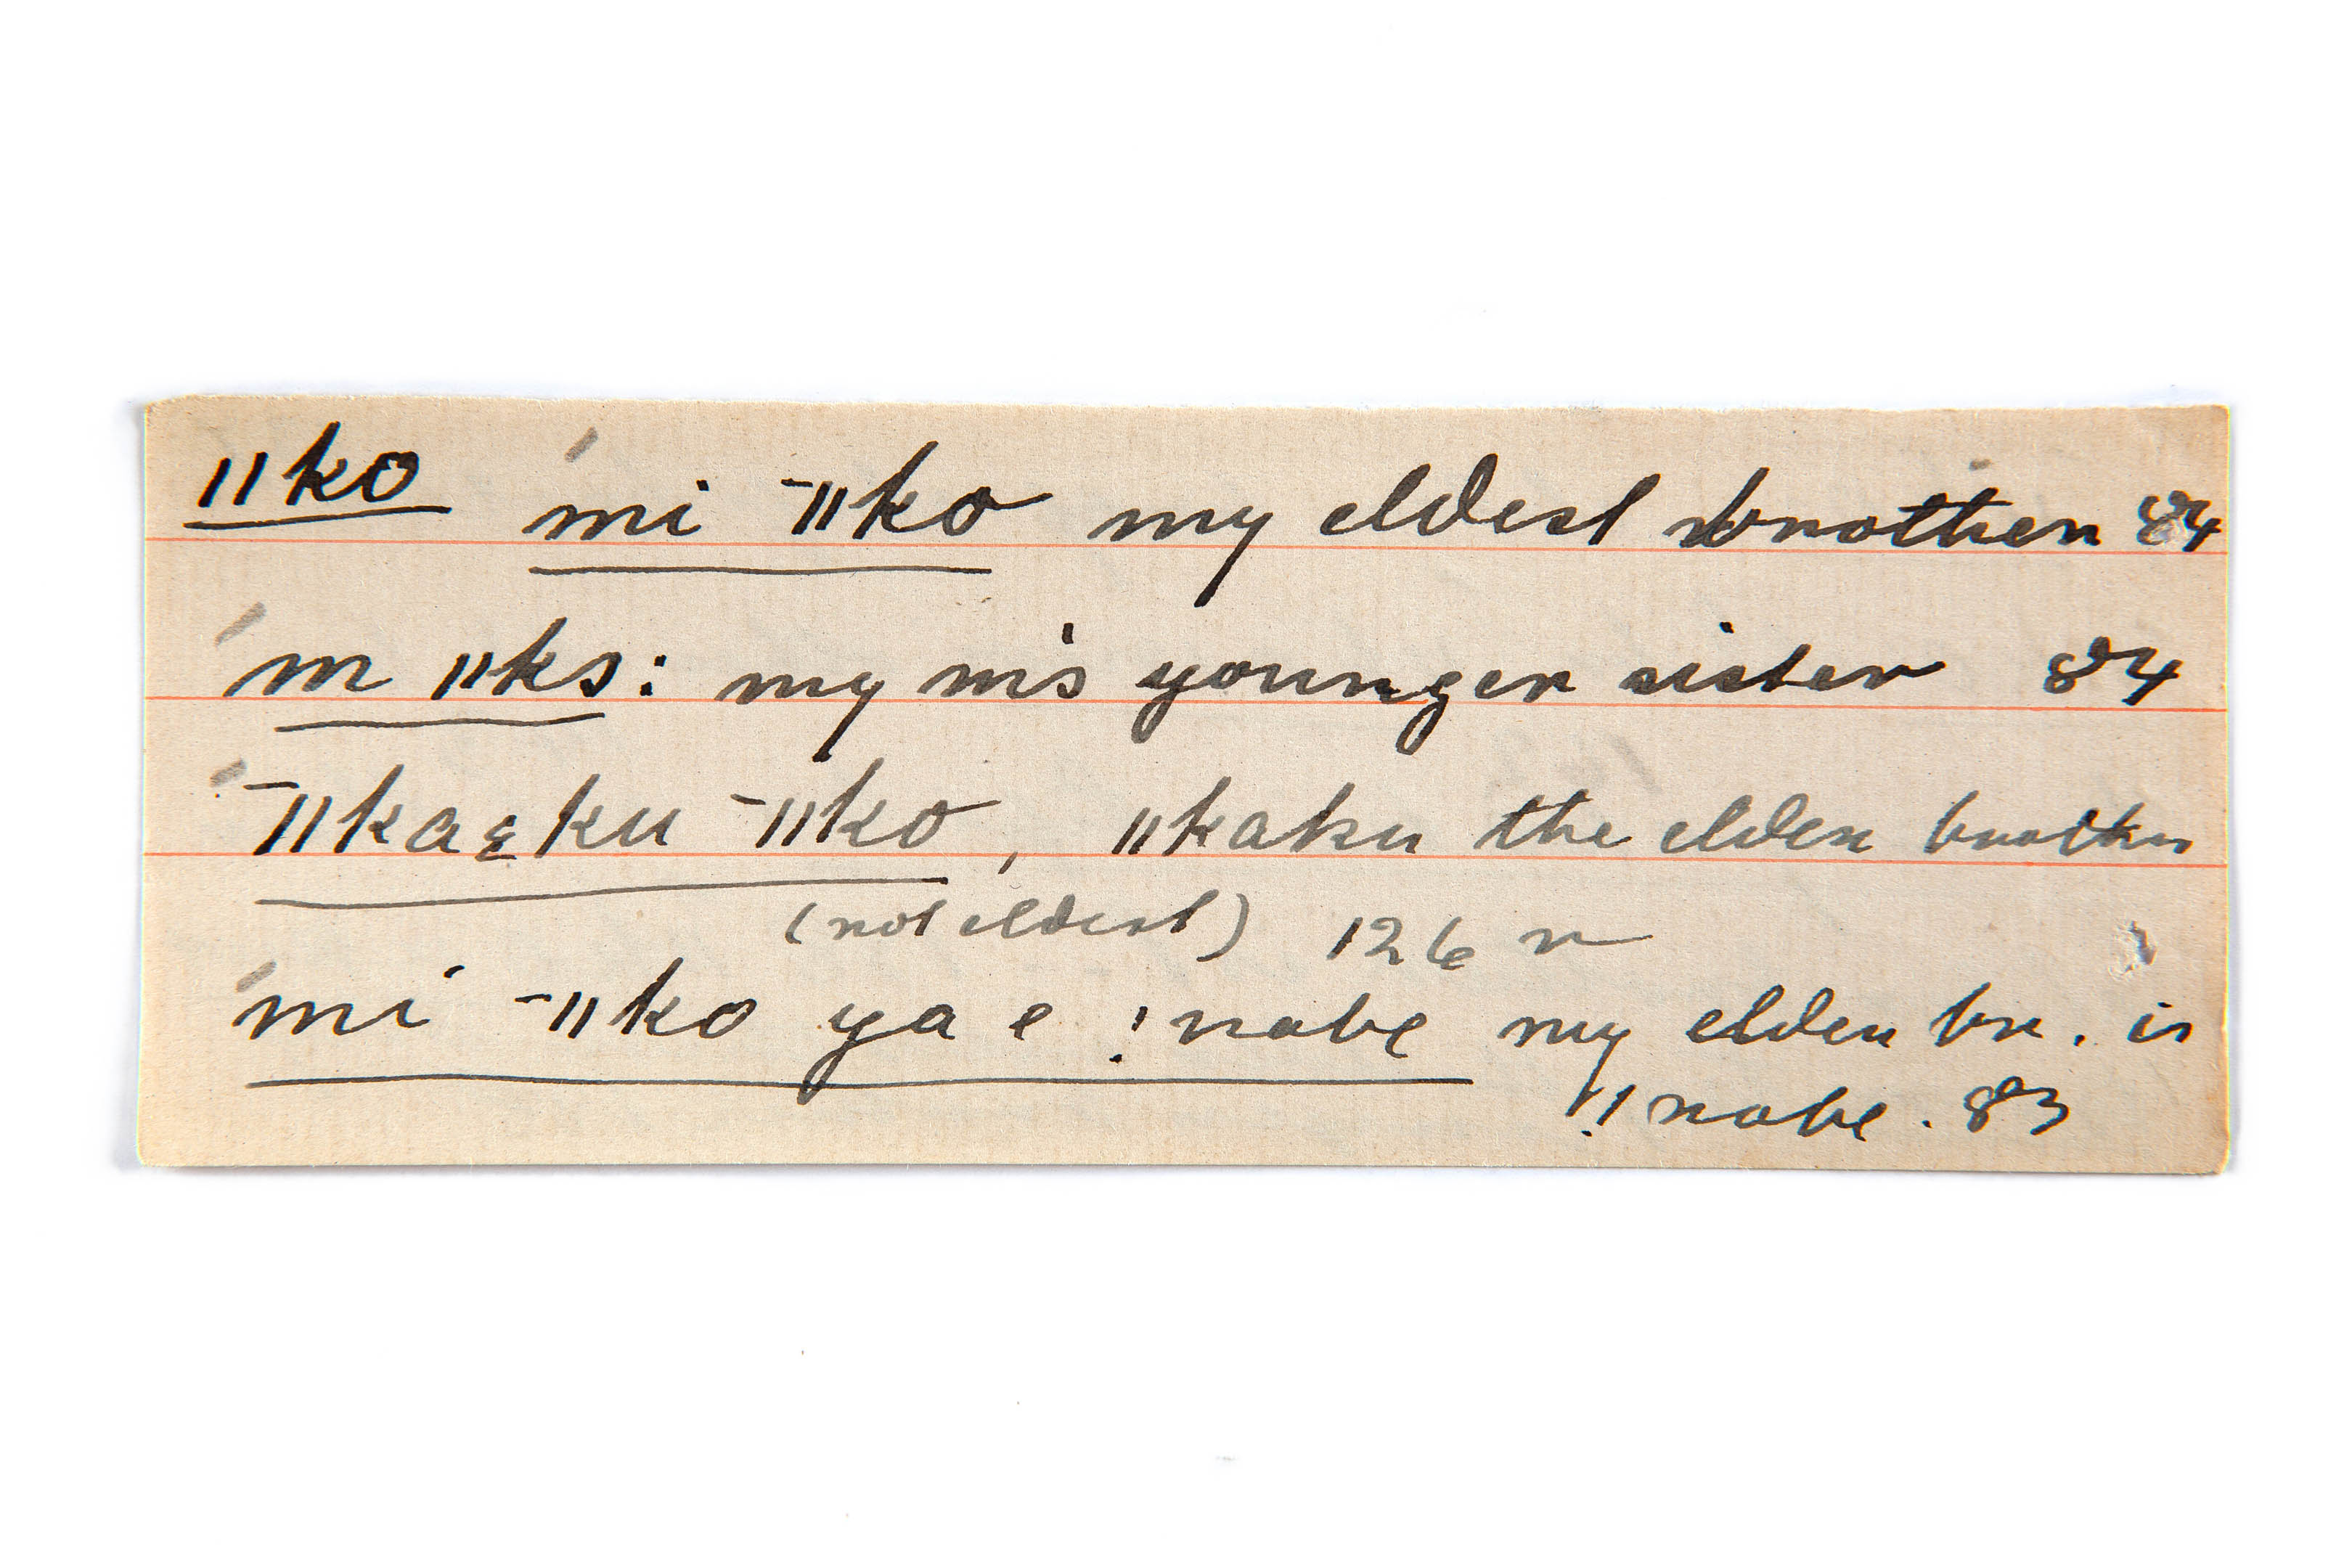 ǁko mi ˉǁko my eldest brother 84
m ǁks: my m's younger sister 84
ˉǁkaεku ˉǁko, ǁkaku the elder brother
(not eldest) 126 r
mi ˉǁko ya e !nabe my elder br. is
!nabe. 83